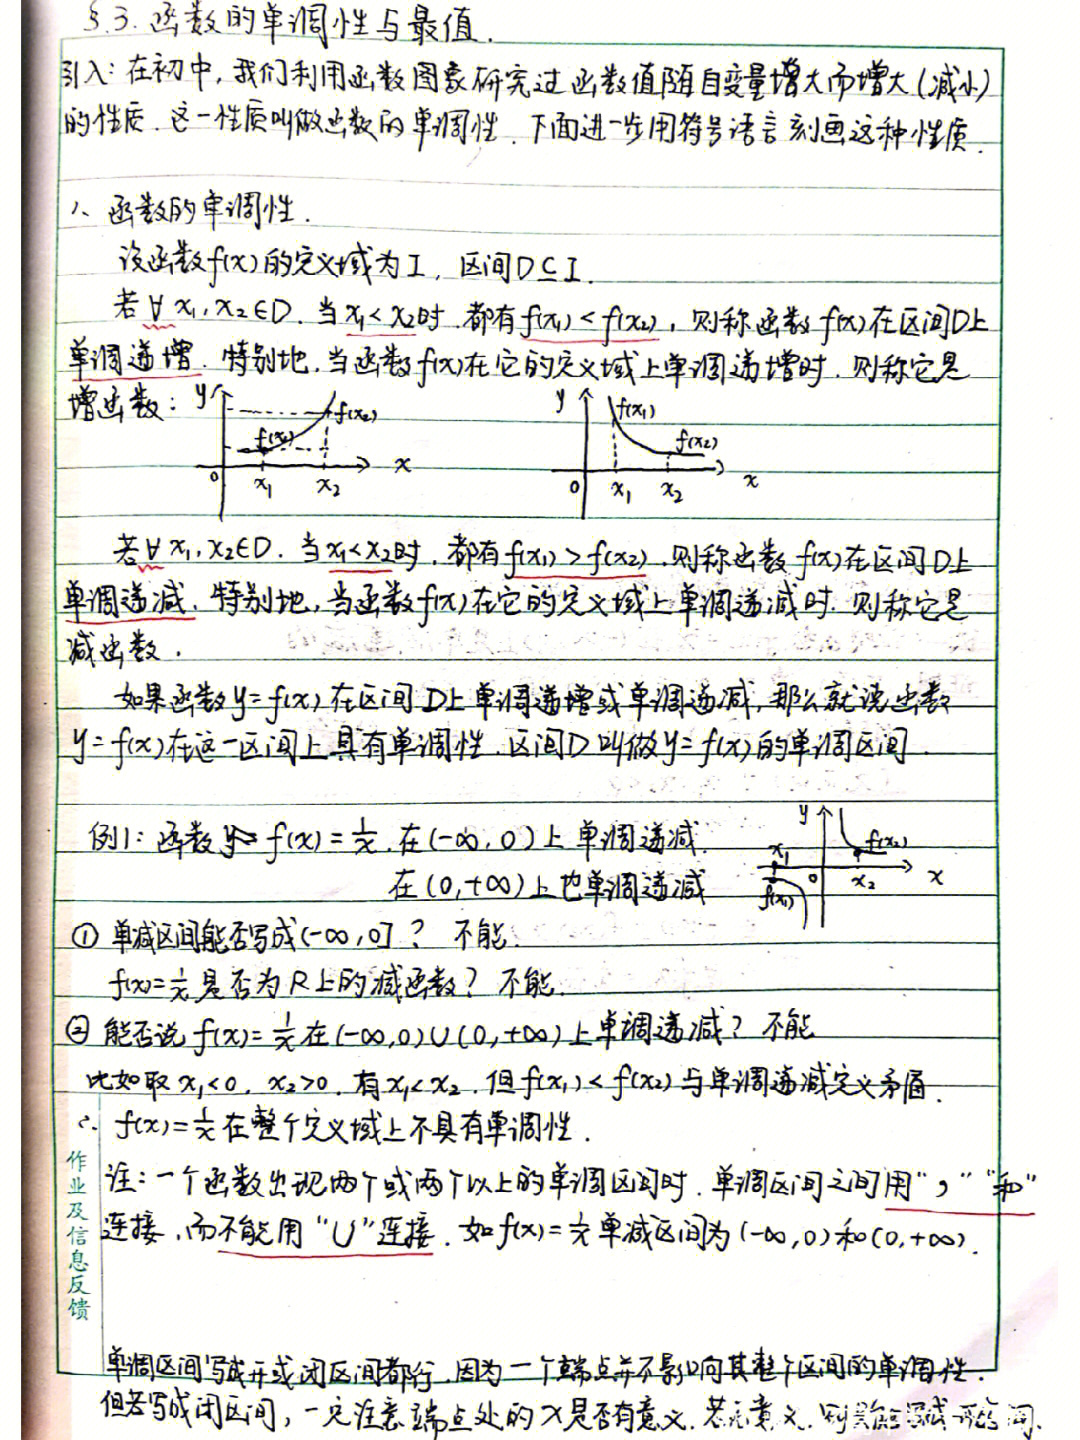 §.3. 函数的单调性与最值.
引入: 在初中, 我们利用函数图象研究过函数值随自变量增大而增大(减小)
的性质. 这一性质叫做函数的单调性. 下面进一步用符号语言刻画这种性质.
1、函数的单调性.
设函数f(x)的定义域为I, 区间D⊆I.
若∀x₁,x₂∈D. 当x₁<x₂时. 都有f(x₁)<f(x₂), 则称函数f(x)在区间D上
单调递增. 特别地, 当函数f(x)在它的定义域上单调递增时. 则称它是
增函数:
y f(x₂) f(x₁) 0 x₁ x₂ x
y f(x₁) f(x₂) 0 x₁ x₂ x
若∀x₁,x₂∈D. 当x₁<x₂时. 都有f(x₁)>f(x₂). 则称函数f(x)在区间D上
单调递减. 特别地, 当函数f(x)在它的定义域上单调递减时. 则称它是
减函数.
如果函数y=f(x)在区间D上单调递增或单调递减, 那么就说函数
y=f(x)在这一区间上具有单调性. 区间D叫做y=f(x)的单调区间.
例1: 函数 f(x)=1/x. 在(-∞,0)上单调递减.
在(0,+∞)上也单调递减
y x₁ f(x₂) 0 x₂ x f(x₁)
① 单减区间能否写成(-∞,0]? 不能.
f(x)=1/x是否为R上的减函数? 不能.
② 能否说f(x)=1/x在(-∞,0)∪(0,+∞)上单调递减? 不能
比如取x₁<0. x₂>0. 有x₁<x₂. 但f(x₁)<f(x₂)与单调递减定义矛盾.
f(x)=1/x在整个定义域上不具有单调性.
注: 一个函数出现两个或两个以上的单调区间时. 单调区间之间用“,”“和”
连接, 而不能用“∪”连接. 如f(x)=1/x单减区间为(-∞,0)和(0,+∞).
作业及信息反馈
单调区间写成开或闭区间都行. 因为一个端点并不影响其整个区间的单调性.
但若写成闭区间, 一定注意端点处的x是否有意义. 若无意义. 则